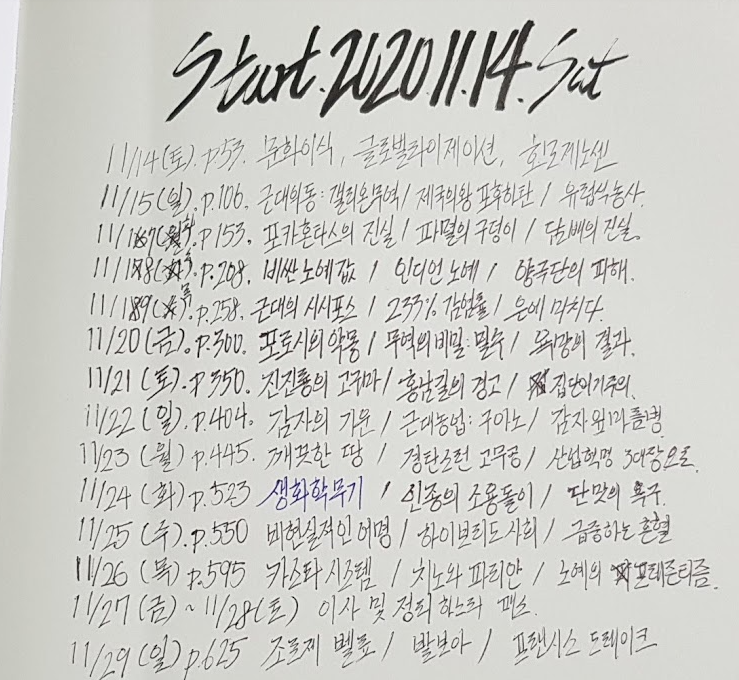 Start. 2020.11.14. Sat
11/14(토). p.53. 문화이식, 글로벌라이제이션, 호모제노센
11/15(일). p.106. 근대의동: 갤리온무역 / 제국의왕 포우하탄 / 유럽식농사.
11/17(화). p.153. 포카혼타스의 진실 / 파멸의 구덩이 / 담배의 진실.
11/18(수). p.208. 비싼노예값 / 인디언 노예 / 양국단의 피해.
11/19(목). p.258. 근대의 시시포스 / 233% 감염률 / 은에 미치다.
11/20(금). p.300. 포토시의 악몽 / 무역의 비밀: 밀수 / 욕망의 결과.
11/21(토). p.350. 진진룡의 고구마 / 홍남길의 경고 / 집단이기주의.
11/22(일). p.404. 감자의 기운 / 근대농업: 구아노 / 감자잎마름병
11/23(월) p.445. 깨끗한 땅 / 경탄스런 고무공 / 산업혁명 3대장으로.
11/24(화) p.523 생화학무기 / 인종의 소용돌이 / 단맛의 욕구.
11/25(수). p.550 비현실적인 여명 / 하이브리드사회 / 급증하는 혼혈
11/26(목) p.595 카스타 시스템 / 치노와 파리안 / 노예의 프태준티즘.
11/27(금) ~ 11/28(토) 이사 및 정리 하느라 패스.
11/29(일) p.625 조르제 벨료 / 발보아 / 프랜시스 드레이크